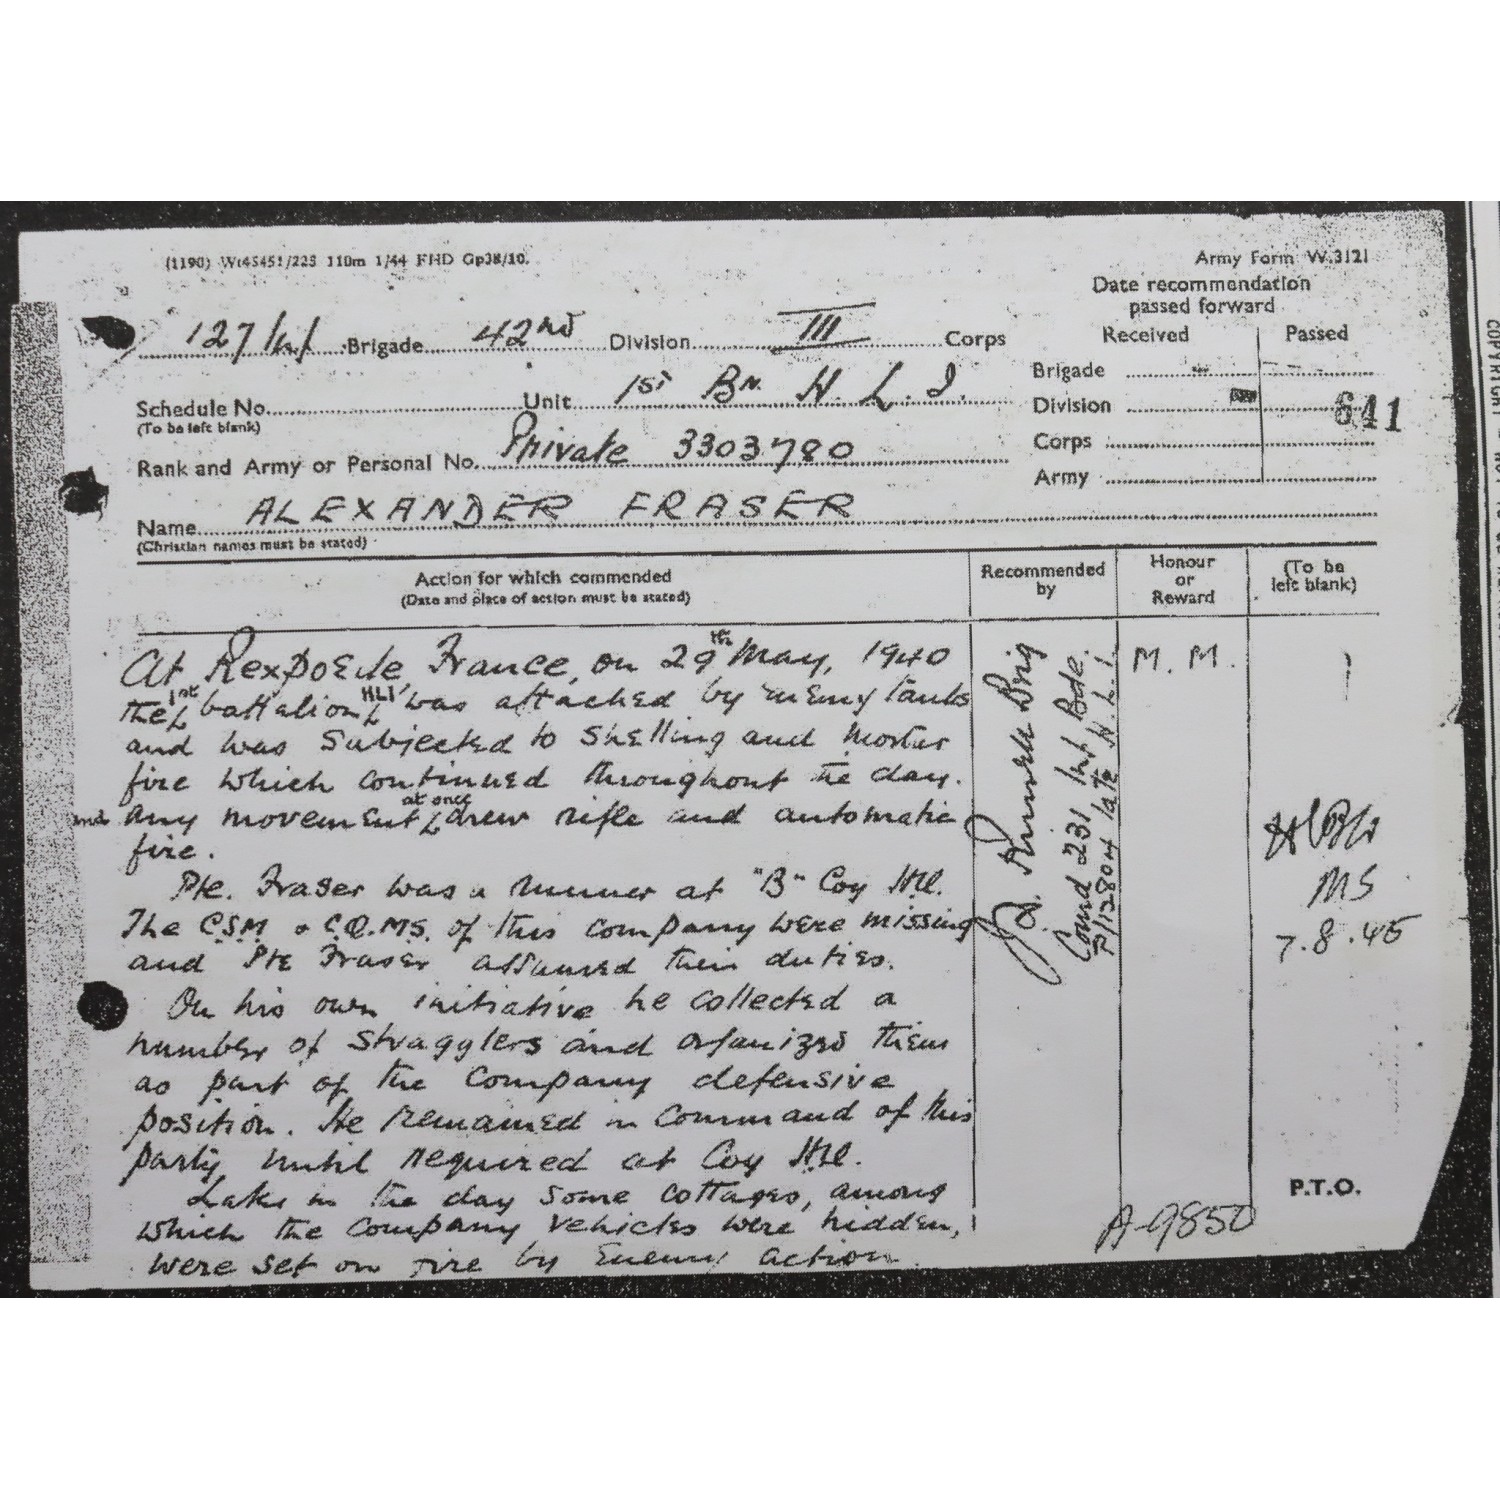 (1190) Wt45451/225 110m 1/44 FHD Gp38/10.
Army Form W.3121
Date recommendation
passed forward
Received Passed
127 Inf Brigade 42nd Division III Corps
Brigade
Schedule No. Unit 1st Bn. H. L. I.
(To be left blank)
Division
641
Corps
Rank and Army or Personal No. Private 3303780
Army
Name ALEXANDER FRASER
(Christian names must be stated)
Action for which commended
(Date and place of action must be stated)
Recommended
by
Honour
or
Reward
(To be
left blank)
At RexPoEde, France, on 29th May, 1940
the 1st battalion HLI was attacked by enemy tanks
and was subjected to shelling and mortar
fire which continued throughout the day.
and any movement at once drew rifle and automatic
fire.
Pte. Fraser was a runner at "B" Coy HQ.
The C.S.M. & C.Q.M.S. of this company were missing
and Pte Fraser assumed their duties.
On his own initiative he collected a
number of stragglers and organized them
as part of the company defensive
position. He remained in command of this
party until required at Coy HQ.
Later in the day some cottages, among
which the company vehicles were hidden,
were set on fire by enemy action.
Brig
Comd 231 Inf Bde.
late H.L.I.
M. M.
MS
7.8.45
P.T.O.
A-9850
COPYRIGHT